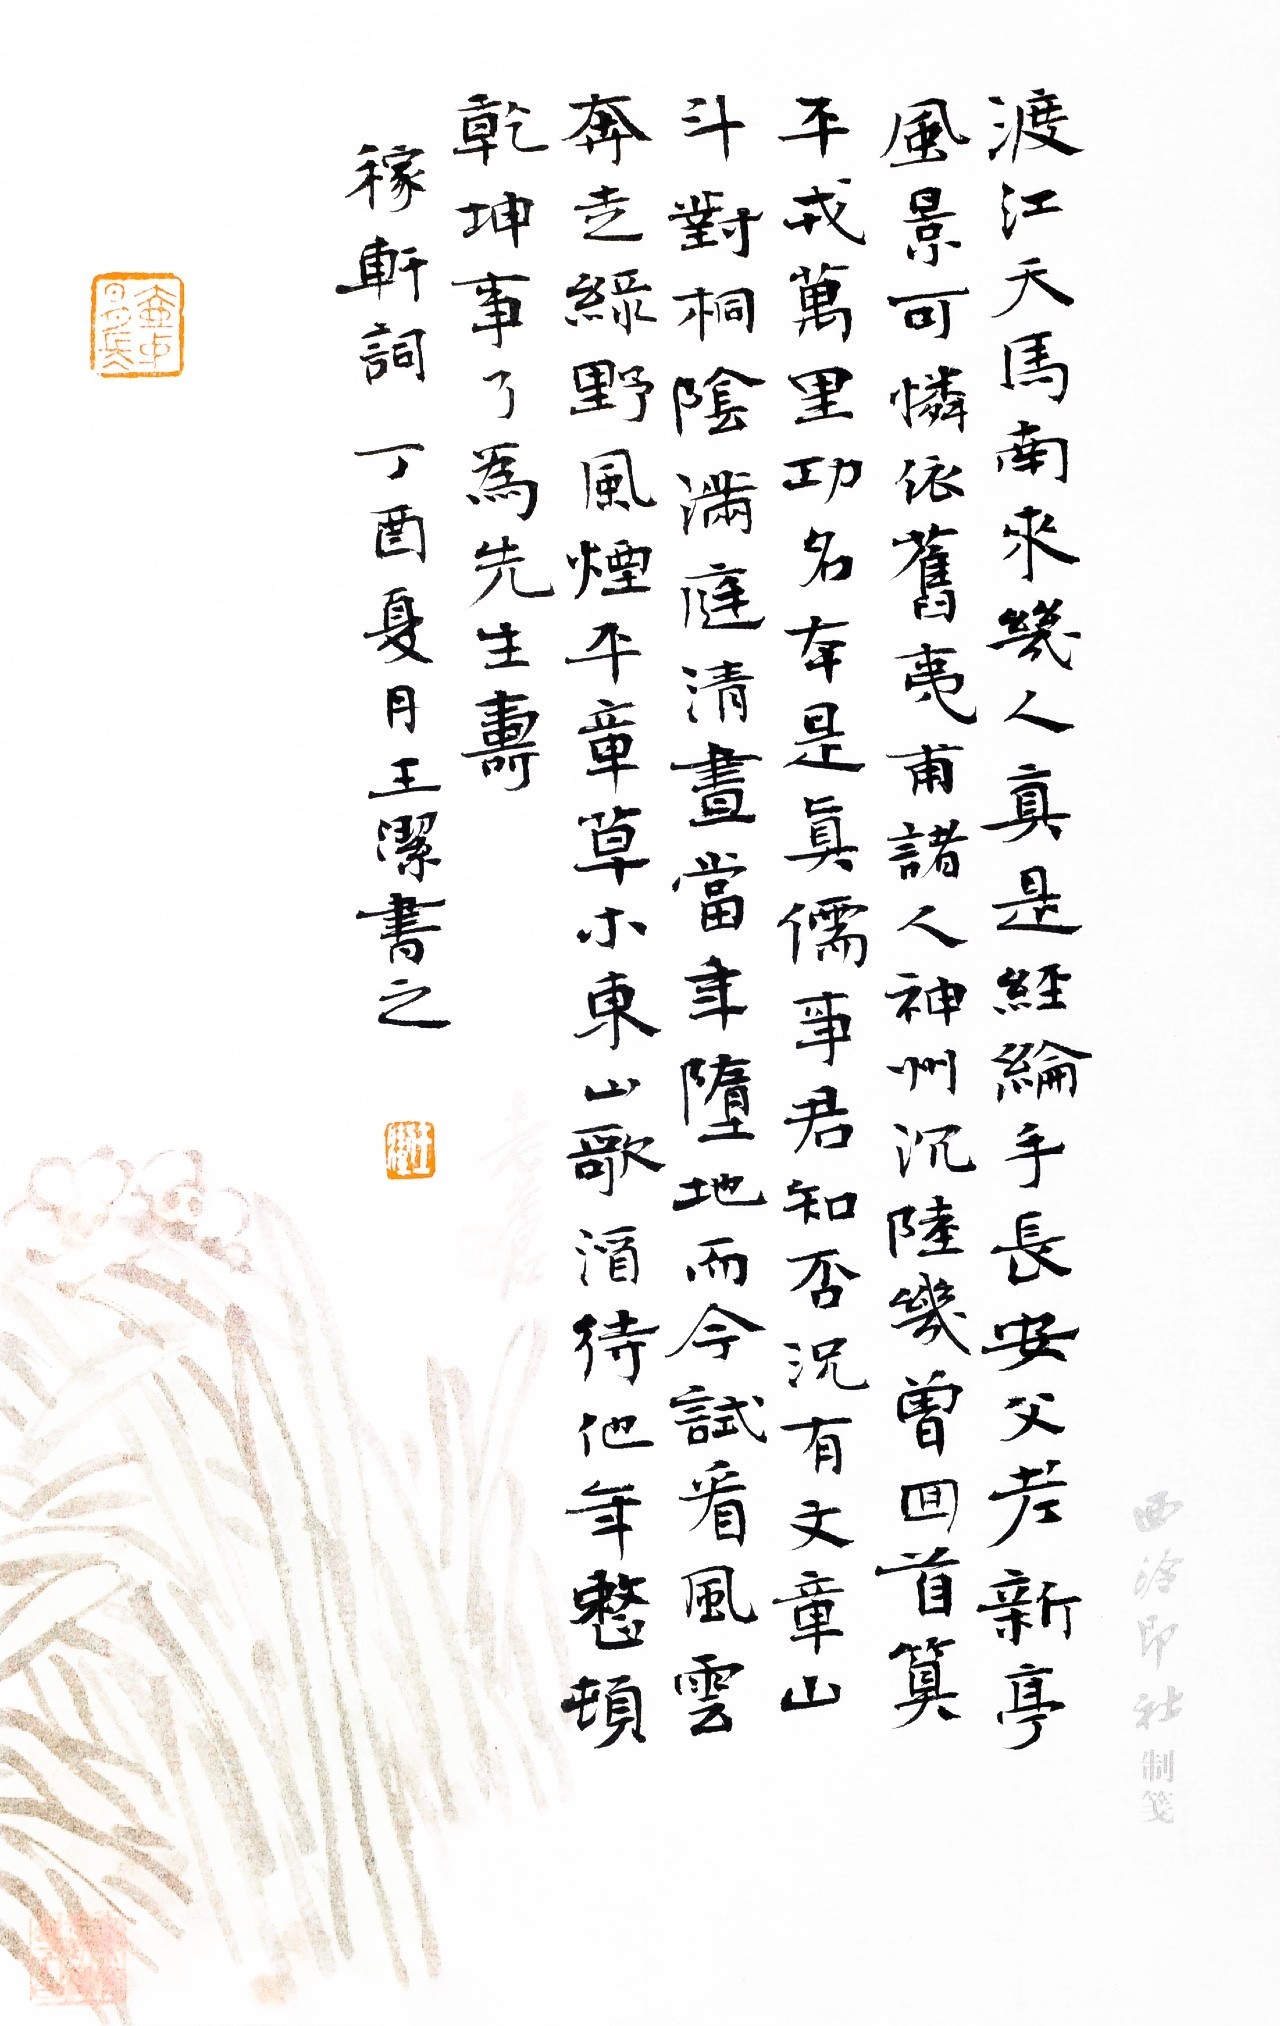 渡江天馬南來幾人真是經綸手長安父老新亭
風景可憐依舊夷甫諸人神州沉陸幾曾回首算
平戎萬里功名本是真儒事君知否況有文章山
斗對桐陰滿庭清晝當年墮地而今試看風雲
奔走綠野風煙平章草木東山歌酒待他年整頓
乾坤事了為先生壽
稼軒詞 丁酉夏月王潔書之
西泠印社制箋